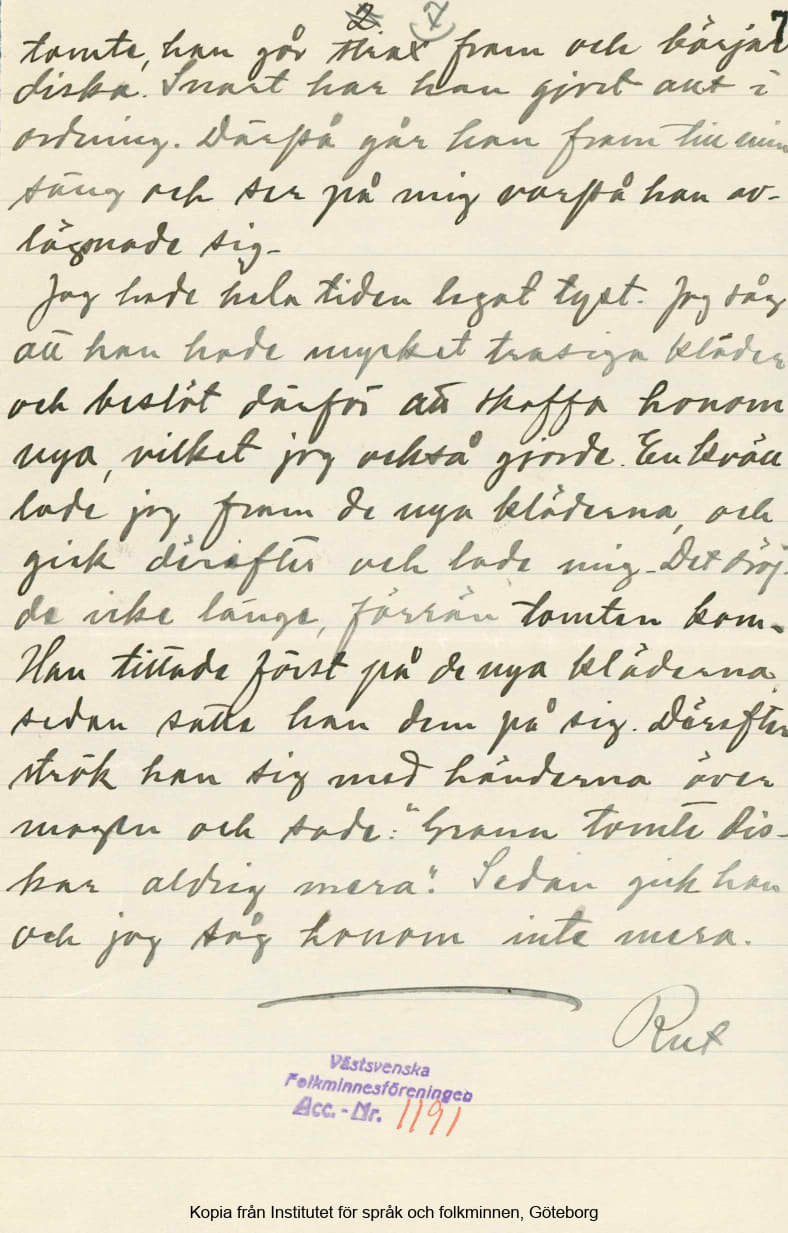 2 7 7
tomte, han går strax fram och börjar
diska. Snart har han gjort allt i
ordning. Därpå går han fram till min
säng och ser på mig varpå han av-
lägsnade sig.
Jag hade hela tiden legat tyst. Jag såg
att han hade mycket trasiga kläder
och beslöt därför att skaffa honom
nya, vilket jag också gjorde. En kväll
lade jag fram de nya kläderna, och
gick därefter och lade mig. Det dröj-
de icke länge, förrän tomten kom.
Han tittade först på de nya kläderna,
sedan satte han dem på sig. Därefter
strök han sig med händerna över
magen och sade: "Grann tomte dis-
kar aldrig mera". Sedan gick han
och jag såg honom inte mera.
Rut
Västsvenska
Folkminnesföreningen
Acc.-Nr. 1191
Kopia från Institutet för språk och folkminnen, Göteborg